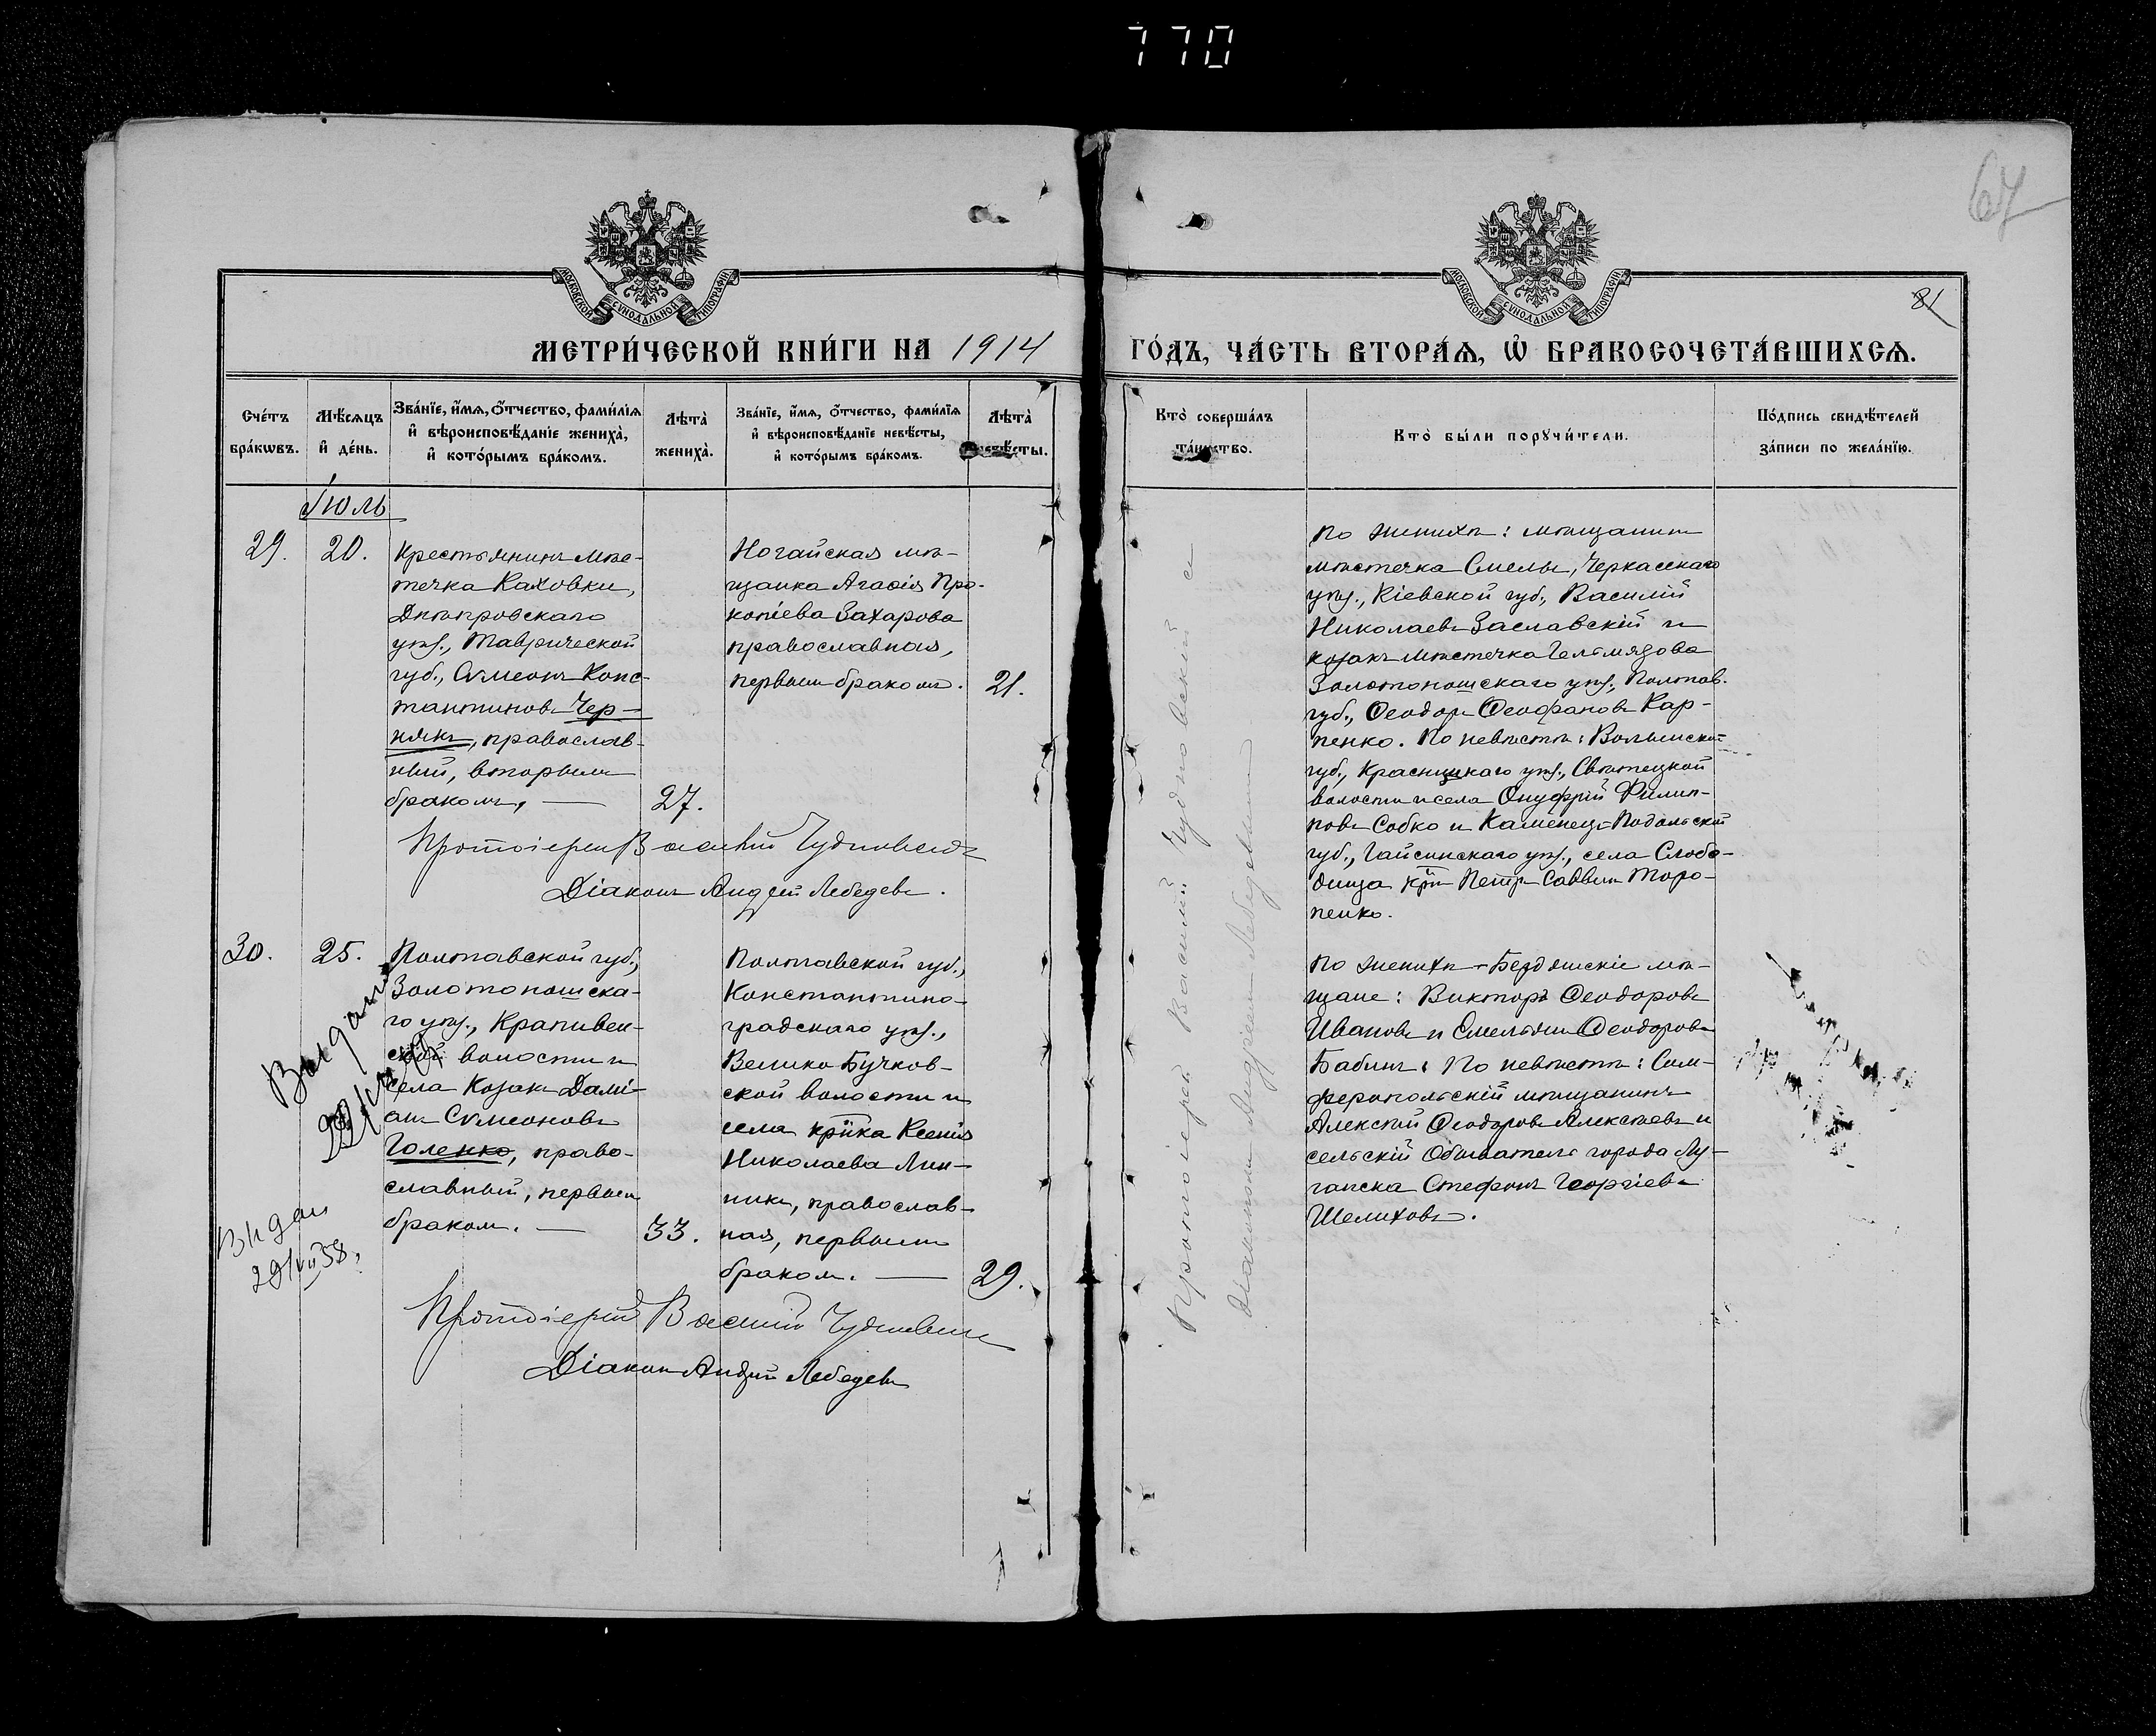 770
67
МОСКОВСКОЙ СУНОДАЛЬНОЙ ТИПОГРАФІИ
МОСКОВСКОЙ СУНОДАЛЬНОЙ ТИПОГРАФІИ
81
МЕТРИ́ЧЕСКОЙ КНИ́ГИ НА 1914
ГО́ДЪ, ЧА́СТЬ ВТОРА́Ѧ, Ѡ҆ БРАКОСОЧЕТА́ВШИХСѦ.
Сче́тъ
бра́кѡвъ.
Мѣ́сѧцъ
и҆ де́нь.
Зва́нїе, и҆́мѧ, ѻ҆́тчество, фами́лїѧ
и҆ вѣроисповѣ́данїе жениха̀,
и҆ кото́рымъ бра́комъ.
Лѣта̀
жениха̀.
Зва́нїе, и҆́мѧ, ѻ҆́тчество, фами́лїѧ
и҆ вѣроисповѣ́данїе невѣ́сты,
и҆ кото́рымъ бра́комъ.
Лѣта̀
невѣ́сты.
Кто̀ соверша́лъ
та́инство.
Кто̀ бы́ли порꙋчи́тели.
По́дпись свидѣ́телей
за́писи по жела́нїю.
Іюль
29.
20.
Крестьянинъ мѣс-
течка Каховки,
Днѣпровскаго
уѣз., Таврической
губ., Сѵмеонъ Конс-
тантиновъ Чер-
някъ, православ-
ный, вторымъ
бракомъ, —
27.
Ногайская мѣ-
щанка Агаѳія Про-
копіева Захарова
православная,
первымъ бракомъ.
21.
Протоіерей Василій Чудновскій
Діаконъ Андрей Лебедевъ.
По женихѣ: мѣщанинъ
мѣстечка Смелы, Черкасскаго
уѣз., Кіевской губ., Василій
Николаевъ Заславскій и
козакъ мѣстечка Гельмязова
Золотоношскаго уѣз., Полтав.
губ., Ѳеодоръ Ѳеофановъ Кар-
пенко. По невѣстѣ: Волынской
губ., Красницкаго уѣз., Свѣтецкой
волости и села Онуфрій Филип-
повъ Собко и Каменецъ-Подольской
губ., Гайсинскаго уѣз., села Слобо-
дища кр͠нъ Петръ Саввинъ Торо-
пенко.
Протоіерей Василій Чудновскій и
Діаконъ Андрей Лебедевъ
30.
25.
Полтавской губ.,
Золотоношска-
го уѣз., Крапивен-
ской волости и
села козакъ Дамі-
анъ Сѵмеоновъ
Голенко, право-
славный, первымъ
бракомъ. —
33.
Полтавской губ.,
Константино-
градскаго уѣз.,
Велико Бучков-
ской волости и
села кр͠нка Ксенія
Николаева Лин-
никъ, православ-
ная, первымъ
бракомъ. —
29.
Выдан
Выдан
29/VII 38,
Протоіерей Василій Чудновскій
Діаконъ Андрей Лебедевъ
По женихѣ - Бердянскіе мѣ-
щане: Викторъ Ѳеодоровъ
Ивановъ и Емельянъ Ѳеодоровъ
Бабинъ: По невѣстѣ: Сим-
феропольскій мѣщанинъ
Алексѣй Ѳеодоровъ Алексѣевъ и
сельскій обыватель города Лу-
ганска Стефанъ Георгіевъ
Шелиховъ.